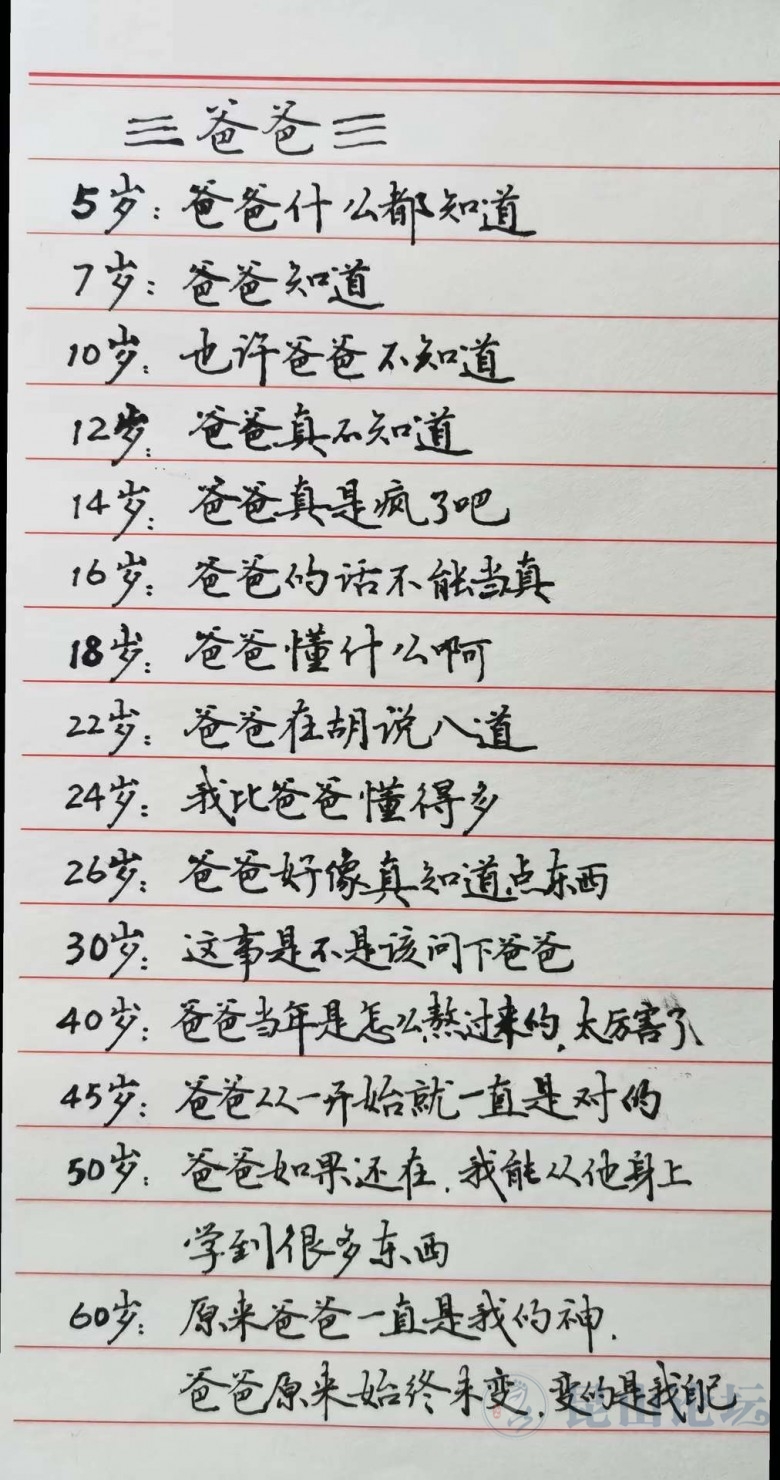 三爸爸三
5岁：爸爸什么都知道
7岁：爸爸知道
10岁：也许爸爸不知道
12岁：爸爸真不知道
14岁：爸爸真是疯了吧
16岁：爸爸的话不能当真
18岁：爸爸懂什么啊
22岁：爸爸在胡说八道
24岁：我比爸爸懂得多
26岁：爸爸好像真知道点东西
30岁：这事是不是该问下爸爸
40岁：爸爸当年是怎么熬过来的，太厉害了
45岁：爸爸从一开始就一直是对的
50岁：爸爸如果还在，我能从他身上
学到很多东西
60岁：原来爸爸一直是我的神，
爸爸原来始终未变，变的是我自己
昆山论坛